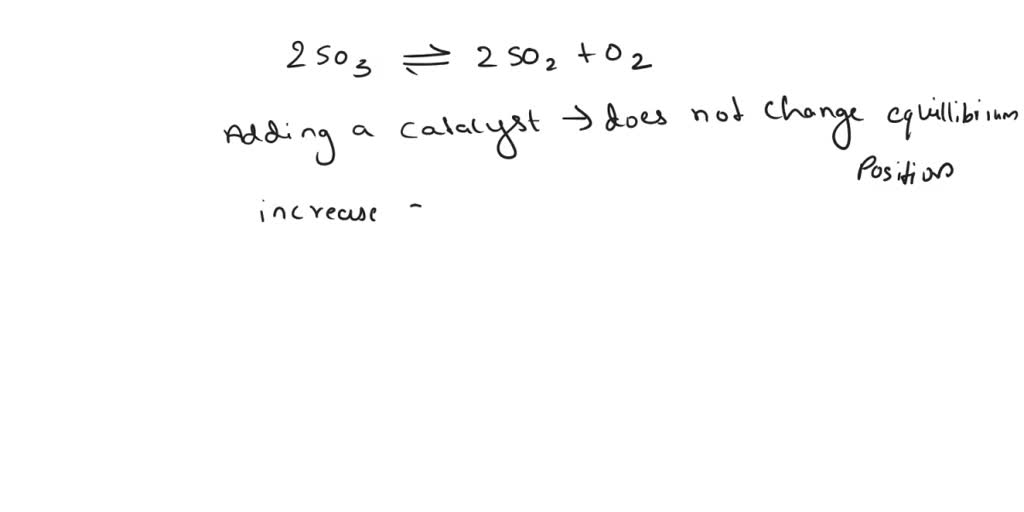 2 SO3 ⇌ 2 SO2 + O2
Adding a catalyst → does not change equillibrium
Position
increase -